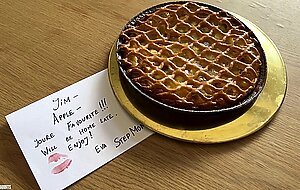 JIM-
APPLE-
YOURE FAVOURITE!!!
WILL BE HOME LATE.
ENJOY!
EVA STEPMOM